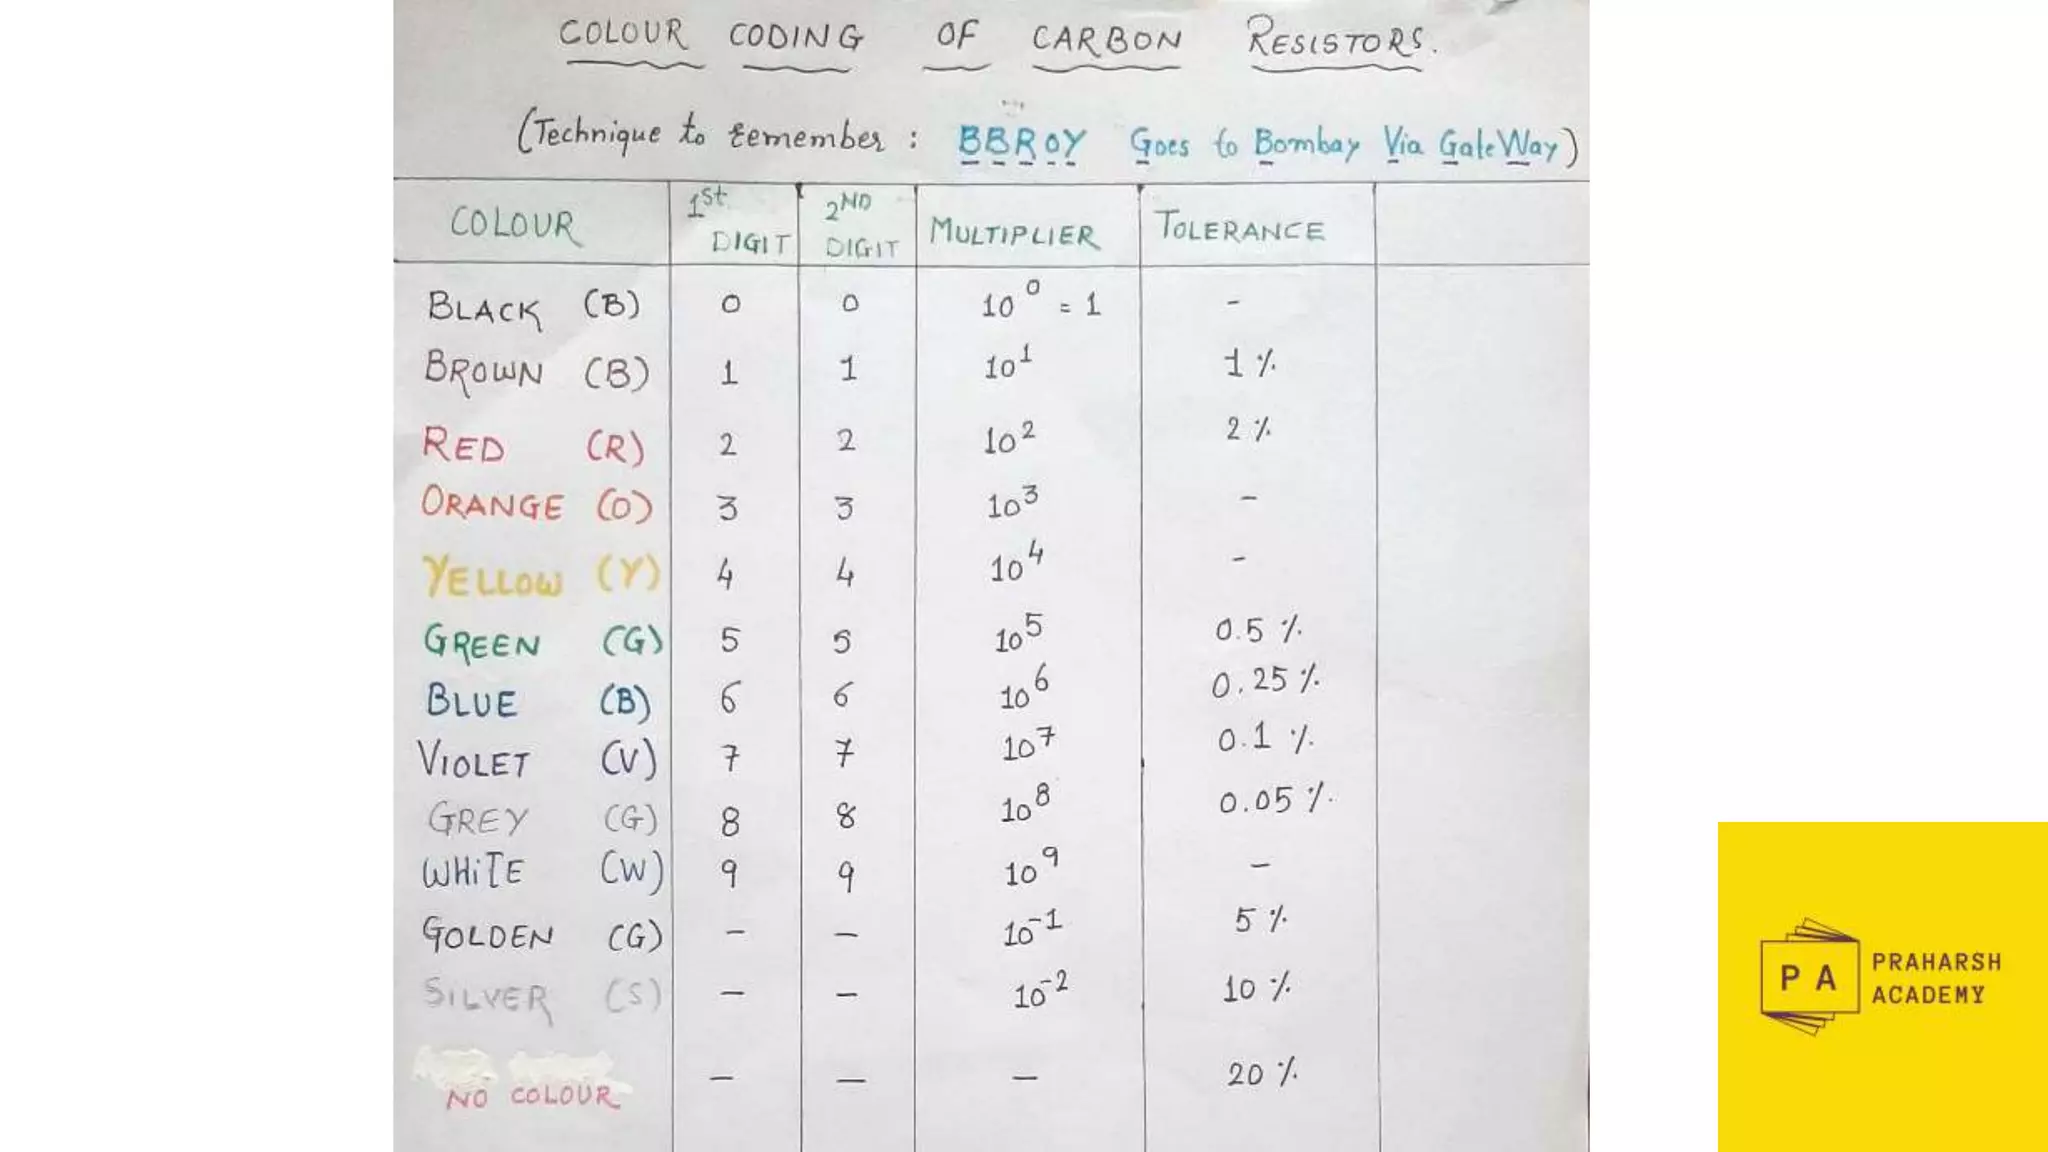 COLOUR CODING OF CARBON RESISTORS.
(Technique to remember : BBROY Goes to Bombay Via GateWay)
COLOUR 1st DIGIT 2ND DIGIT MULTIPLIER TOLERANCE
BLACK (B) 0 0 10⁰ = 1 -
BROWN (B) 1 1 10¹ 1 %
RED (R) 2 2 10² 2 %
ORANGE (O) 3 3 10³ -
YELLOW (Y) 4 4 10⁴ -
GREEN (G) 5 5 10⁵ 0.5 %
BLUE (B) 6 6 10⁶ 0.25 %
VIOLET (V) 7 7 10⁷ 0.1 %
GREY (G) 8 8 10⁸ 0.05 %
WHiTE (W) 9 9 10⁹ -
GOLDEN (G) - - 10⁻¹ 5 %
SILVER (S) - - 10⁻² 10 %
NO COLOUR - - - 20 %
PA PRAHARSH
ACADEMY